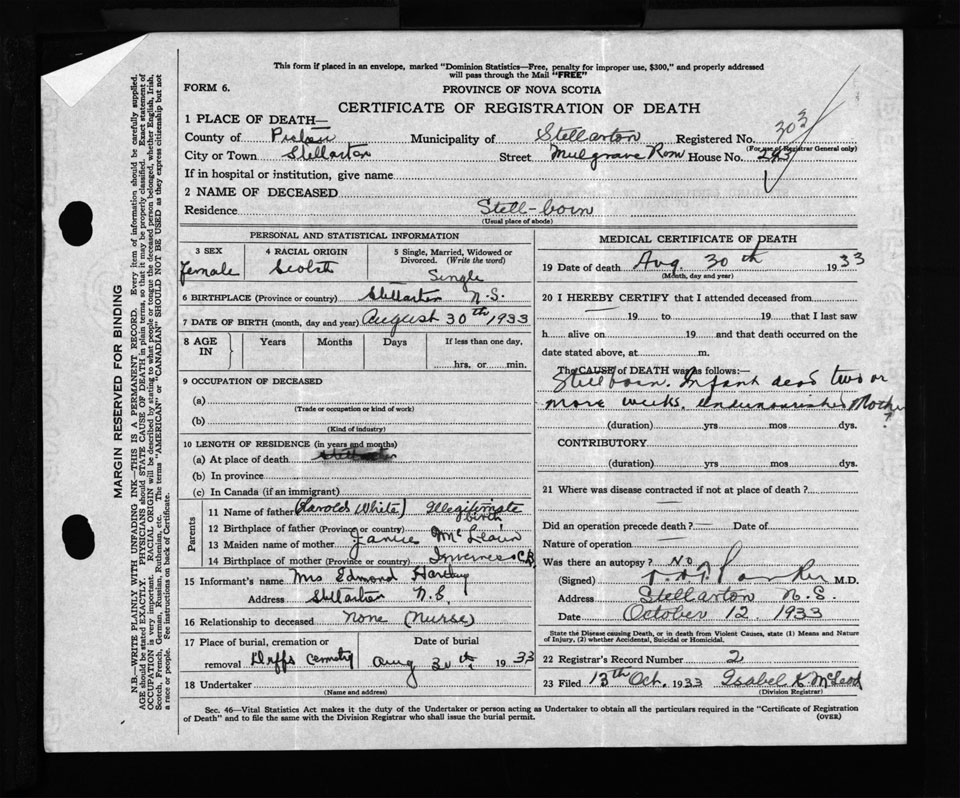 This form if placed in an envelope, marked "Dominion Statistics—Free, penalty for improper use, $300," and properly addressed
will pass through the Mail "FREE"
FORM 6.
PROVINCE OF NOVA SCOTIA
CERTIFICATE OF REGISTRATION OF DEATH
1 PLACE OF DEATH—
County of Pictou Municipality of Stellarton Registered No. 303
(For use of Registrar General only)
City or Town Stellarton Street Mulgrave Row House No. 243
If in hospital or institution, give name
2 NAME OF DECEASED
Residence Still-born
(Usual place of abode)
PERSONAL AND STATISTICAL INFORMATION
3 SEX 4 RACIAL ORIGIN 5 Single, Married, Widowed or
Divorced. (Write the word)
female Scotch Single
6 BIRTHPLACE (Province or country) Stellarton N.S.
7 DATE OF BIRTH (month, day and year) August 30th 1933
8 AGE IN Years Months Days If less than one day,
hrs, or min.
9 OCCUPATION OF DECEASED
(a)
(Trade or occupation or kind of work)
(b)
(Kind of industry)
10 LENGTH OF RESIDENCE (in years and months)
(a) At place of death
(b) In province
(c) In Canada (if an immigrant)
Parents
11 Name of father (Harold White) Illegitimate birth
12 Birthplace of father (Province or country)
13 Maiden name of mother Janice
14 Birthplace of mother (Province or country) Inverness C.B.
15 Informant's name Mrs Edmond
Address Stellarton N.S.
16 Relationship to deceased None (Nurse)
17 Place of burial, cremation or Date of burial
removal Duffs Cemetry Aug 30th. 1933
18 Undertaker
(Name and address)
MEDICAL CERTIFICATE OF DEATH
19 Date of death Aug. 30th 1933
(Month, day and year)
20 I HEREBY CERTIFY that I attended deceased from
19 to 19 that I last saw
h alive on 19 and that death occurred on the
date stated above, at m.
The CAUSE of DEATH was as follows:—
Stillborn. Infant dead two or
more weeks. Undernourished Mother
(duration) yrs mos dys.
CONTRIBUTORY
(duration) yrs mos dys.
21 Where was disease contracted if not at place of death?
Did an operation precede death? Date of
Nature of operation
Was there an autopsy? No
(Signed) M.D.
Address Stellarton N.S.
Date October 12, 1933
State the Disease causing Death, or in death from Violent Causes, state (1) Means and Nature
of Injury, (2) whether Accidental, Suicidal or Homicidal.
22 Registrar's Record Number 2
23 Filed 13th Oct, 1933 Isabel K. McLeod
(Division Registrar)
Sec. 46—Vital Statistics Act makes it the duty of the Undertaker or person acting as Undertaker to obtain all the particulars required in the "Certificate of Registration
of Death" and to file the same with the Division Registrar who shall issue the burial permit. (OVER)
MARGIN RESERVED FOR BINDING
N.B.—WRITE PLAINLY WITH UNFADING INK—THIS IS A PERMANENT RECORD. Every item of information should be carefully supplied.
AGE should be stated EXACTLY. PHYSICIANS should STATE CAUSE OF DEATH in plain terms, so that it may be properly classified. Exact statement of
OCCUPATION is very important. RACIAL ORIGIN will be described by stating to what people or tongue the deceased person belonged, whether English, Irish,
Scotch, French, German, Russian, Ruthenian, etc. The terms "AMERICAN" or "CANADIAN" SHOULD NOT BE USED as they express citizenship but not
a race or people. See instructions on back of Certificate.